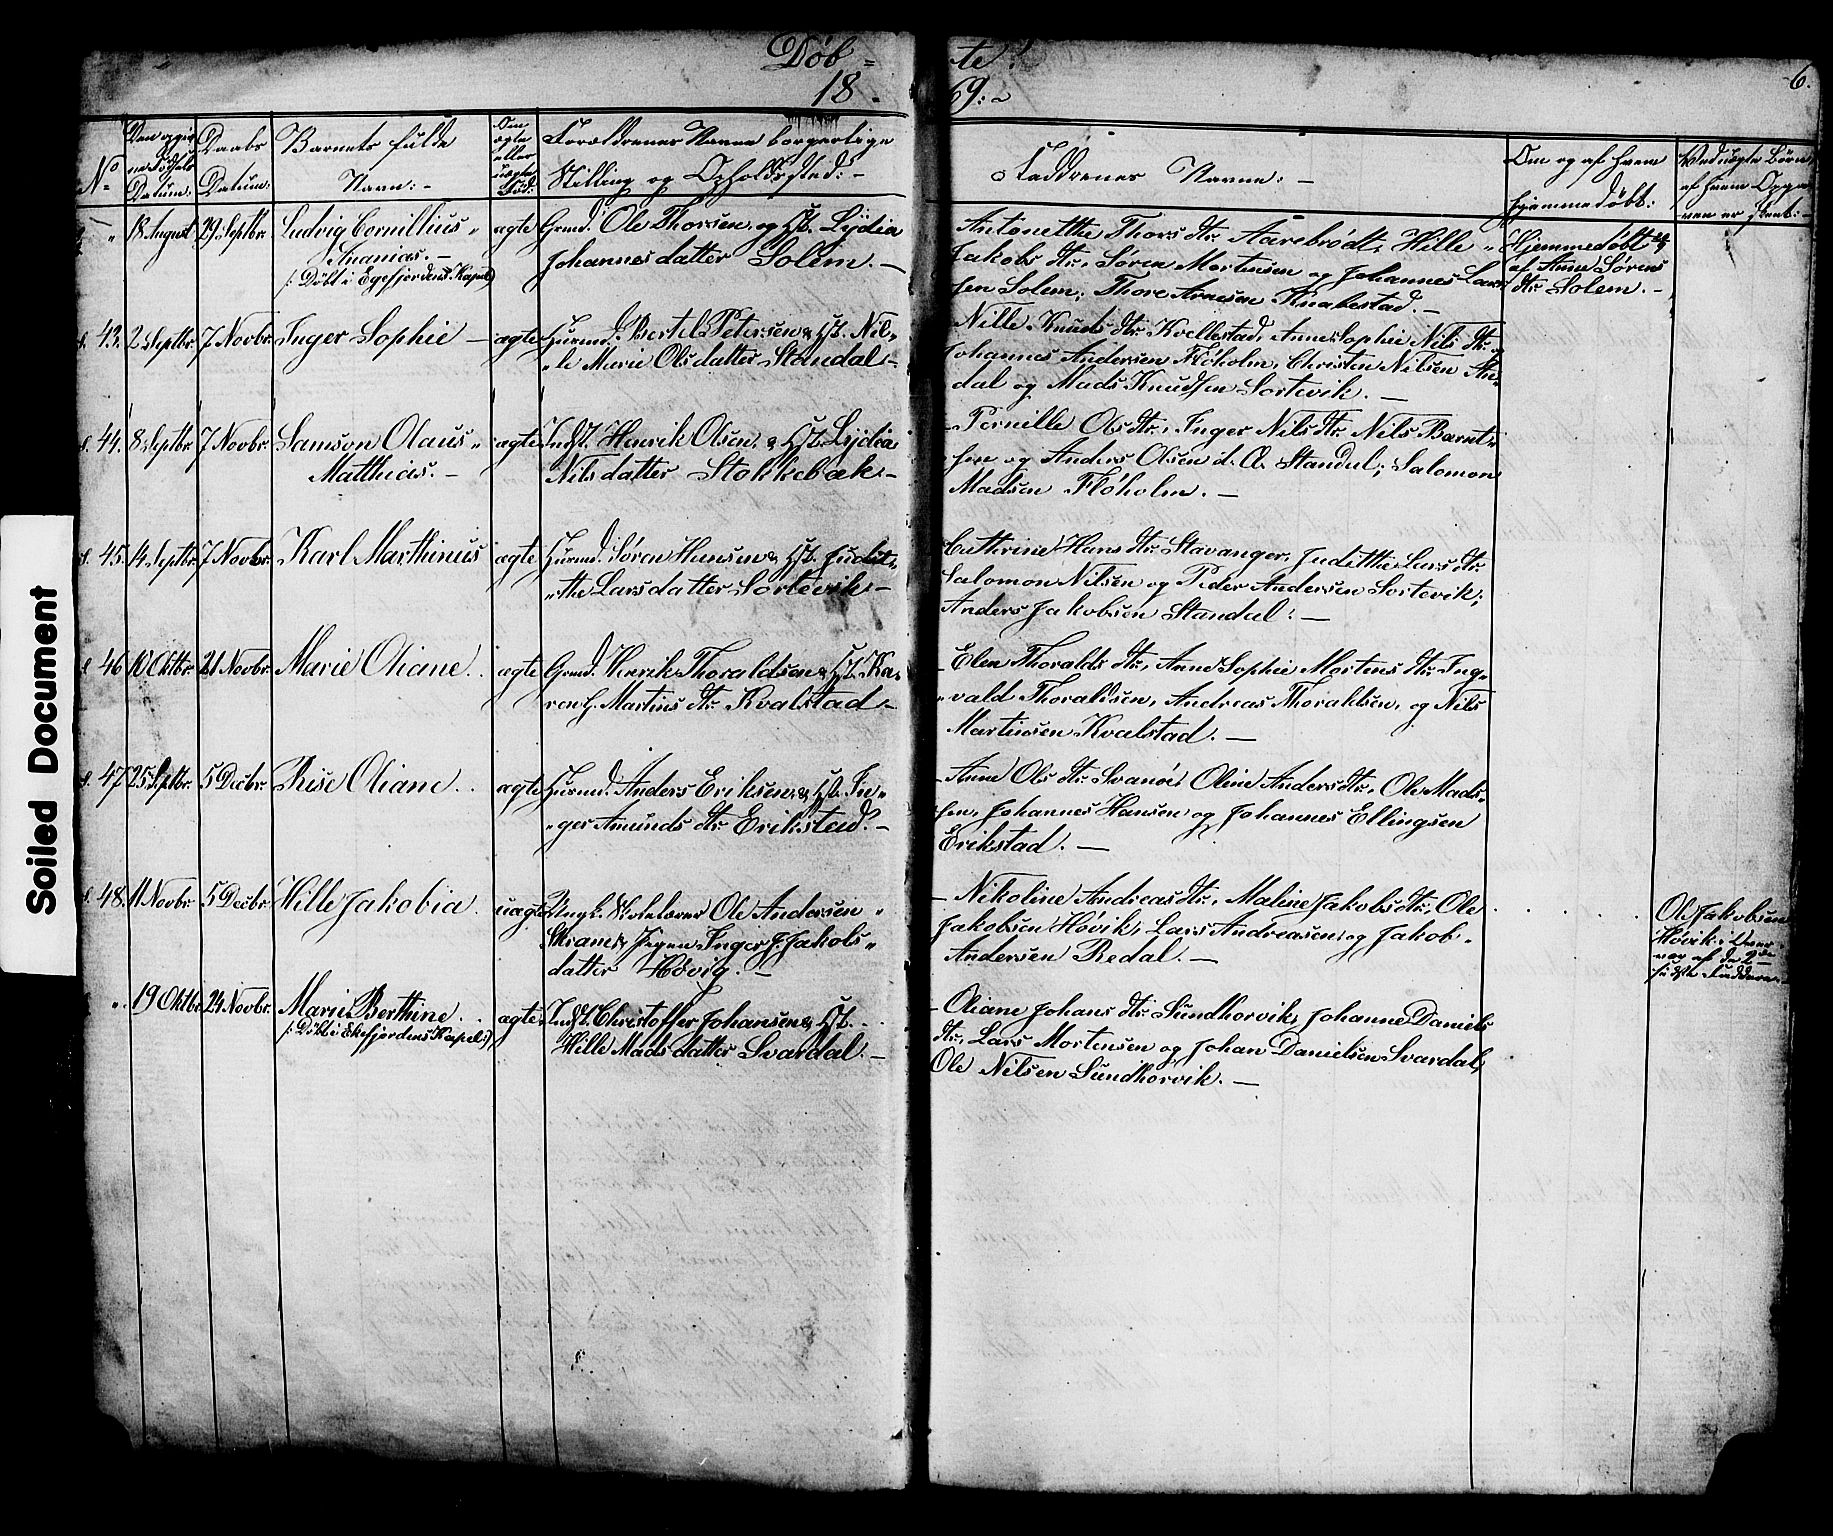 Döb = te.
1869.
6.
Soiled Document
No
Den opgivne Födsels Datum:
Daabs Datum:
Barnets fulde Navn: -
Om ægte eller uægte Föd:
Forældrenes Navne borgerlige Stilling og Opholdssted: -
Faddrenes Navne: -
Om og af hvem hjemmedöbt:
Ved uægte Börn af hvem Opgaven er skeet: -
" 18 August 29 Septbr. Ludvig Cornillius " ægte Grmd. Ole Thorsen og Hst. Lydia
Ananias. - Johannesdatter Solem. -
/: Döbt i Egefjordens Kapel
Antonette Thors dtr. Aarebrödt, Hille "
Jakobs dtr. Sören Mortensen og Johannes Lars
sen Solem; Thore Arnesen Knabestad. -
Hjemmedöbt
af Anne Sörens
dtr. Solem. -
43. 2 Septbr. 7 Novbr. Inger Sophie - ægte Huusmd. Bertel Petersen & Hst. Nil=
"le Marie Olsdatter Standal -
Nille Knuds dtr. Kvellestad, Anne Sophie Nils dtr. og
Johannes Andersen Flöholm, Christen Nilsen An=
dal og Mads Knudsen Sortevik. -
44. 8 Septbr. 7 Novbr. Samson Olaus " ægte Indst. Henrik Olsen & Hst. Lydia
Matthias. - Nilsdatter Stokkebæk -
- Pernille Ols dtr. Inger Nils dtr. Nils Barnt"
sen og Anders Olsen d. Æ. Standal; Salomon
Madsen Flöholm. -
45. 14 Septbr. 7 Novbr. Karl Marthinus ægte Huusmd. Sören Hansen & Hst. Judit=
"the Larsdatter Sortevik -
Cathrine Hans dtr. Stavanger, Judithe Lars dtr.
Salomon Nilsen og Peder Andersen Sortevik;
Anders Jakobsen Standal: -
46 10 Oktbr. 21 Novbr. Marie Oliane. . ægte Grmd. Henrik Thoraldsen & Hst. Ka=
ren H. Martins dtr. Kvalstad -
- Elen Thoralds dtr. Anne Sophie Mortens dtr. Ing=
"vald Thoraldsen, Andreas Thoraldsen, og Nils
Martinsen Kvalstad. -
47 25 Septbr. 5 Decbr. Rise Oliane. . ægte Huusmd. Anders Eriksen & Hst. In"
"ger Amunds dtr. Erikstad. -
- Anne Ols dtr. Svanöe, Oline Anders dtr. Ole Mads"
sen, Johannes Hansen og Johannes Ellingsen
Erikstad. -
48. 11 Novbr. 5 Decbr. Hille Jakobia. uægte Ungk. Skolelærer Ole Andersen "
Pigen Inger J. Jakobs"
datter Hövig. -
- Nikoline Andreas dtr. Maline Jakobs dtr. Ole
Jakobsen Hövik, Lars Andreasen og Jakob "
Andersen Redal. -
Ole Jakobsen
Hövik i
af de 2de
sidste Faddere. -
" 19 Oktbr. 24 Novbr. Marie Berthine. . ægte Indst. Christoffer Johansen & Hst. .
/: Döbt i Ekefjordens Kapel:/ Hille Madsdatter Svardal. -
- Oliane Johans dtr. Sundhorvik, Johanne Daniels
dtr. Lars Mortensen og Johan Danielsen Svardal,
Ole Nilsen Sundhorvik. -